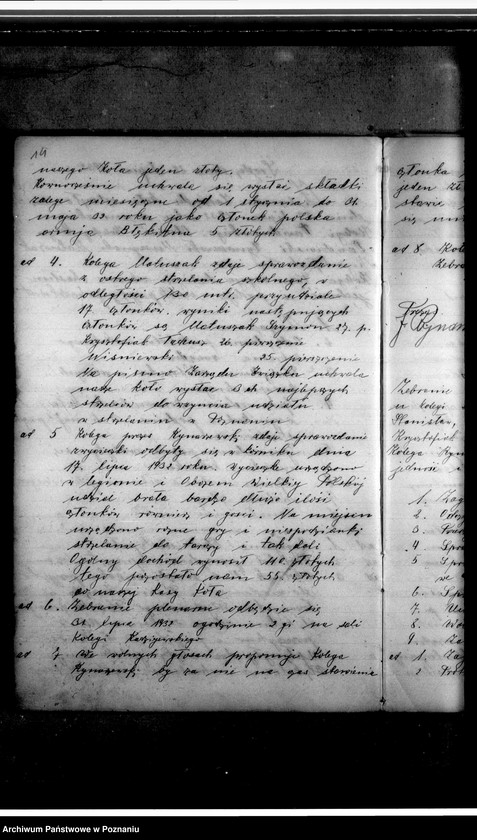 14
naszego Koła jeden złoty.
Równocześnie uchwala się wysłać składki
zaległe miesięczne od 1 stycznia do 31.
maja 33 roku jako członek polska
armja Błękitna 5 złotych.
ad 4. Kolega Matuszak zdaje sprawozdanie
z ostrego strzelania szkolnego, w
odległości 130 mtr. przy udziale
17 członków. wyniki następujących
członków są Matuszak Szymon 27. p.
Krysztofiak Tadeusz 26. pierścieni
Wiśniewski 25 pierścienie
Na pismo Zarządu Związku uchwala
nasze koło wysłać 3-ch najlepszych
strzelców do wzięcia udziału
w strzelaniu w Poznaniu
ad 5 Kolega prezes Rynarzewski zdaje sprawozdanie
wycieczki odbytej się w Kórniku dnia
17. lipca 1932 roku. Wycieczkę urządzono
w legionie i Obozem Wielkiej Polski
udział brała bardzo dużo ilość
członków, również i gości. Na miejscu
urządzono różne gry i niespodzianki
strzelanie do tarczy i tak dali
Ogólny dochód wynosił 110 złotych
z tego pozostało nam 55 złotych
do naszej Kasy Koła
ad 6. Zebranie plenarne odbędzie się
31. lipca 1932 o godzinie 2 gi na sali
Kolegi
ad 7 We wolnych głosach proponuje Kolega
Rynarzewski by za nie na gas
członka
jeden zł
stawie
się
ad 8. Koł
Zebra
Zebranie
u kolegi
Stanisław,
Krysztofiak
Kolega Ryn
jedność i
1. Zag
2. Odczy
3.
4. Spra
5 Spra
we
6. Spr
7.
8. Wo
9. Za
ad 1. Zag
2
Archiwum Państwowe w Poznaniu